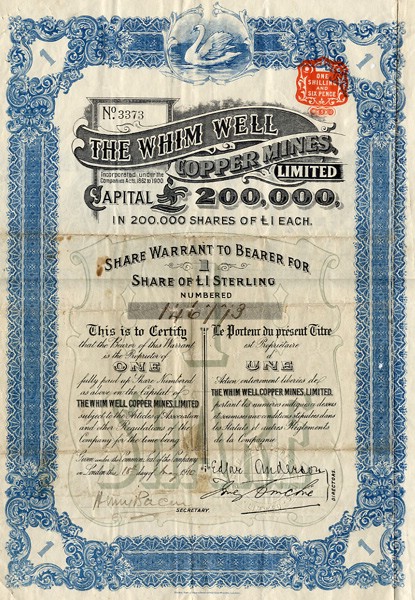 1
1
ONE
SHILLING
AND
SIX PENCE
No. 3373
THE WHIM WELL
COPPER MINES,
LIMITED
Incorporated under the
Companies Acts, 1862 to 1900
CAPITAL £200,000,
IN 200,000 SHARES OF £1 EACH.
SHARE WARRANT TO BEARER FOR
1
SHARE OF £1 STERLING
NUMBERED
146773
This is to Certify
that the Bearer of this Warrant
is the Proprietor of
ONE
fully paid up Share Numbered
as above in the Capital of
THE WHIM WELL COPPER MINES, LIMITED
subject to the Articles of Association
and other Regulations of the
Company for the time being
Given under the common seal of the Company
in London this 15 day of
Le Porteur du présent Titre
est Propriétaire
d'
UNE
Action entièrement libérée de
THE WHIM WELL COPPER MINES, LIMITED,
portant les numéros indiqués ci-dessus
et soumise aux conditions stipulées dans
les Statuts et autres Règlements
de la Compagnie
Edgar Anderson
DIRECTORS.
SECRETARY.
1
1